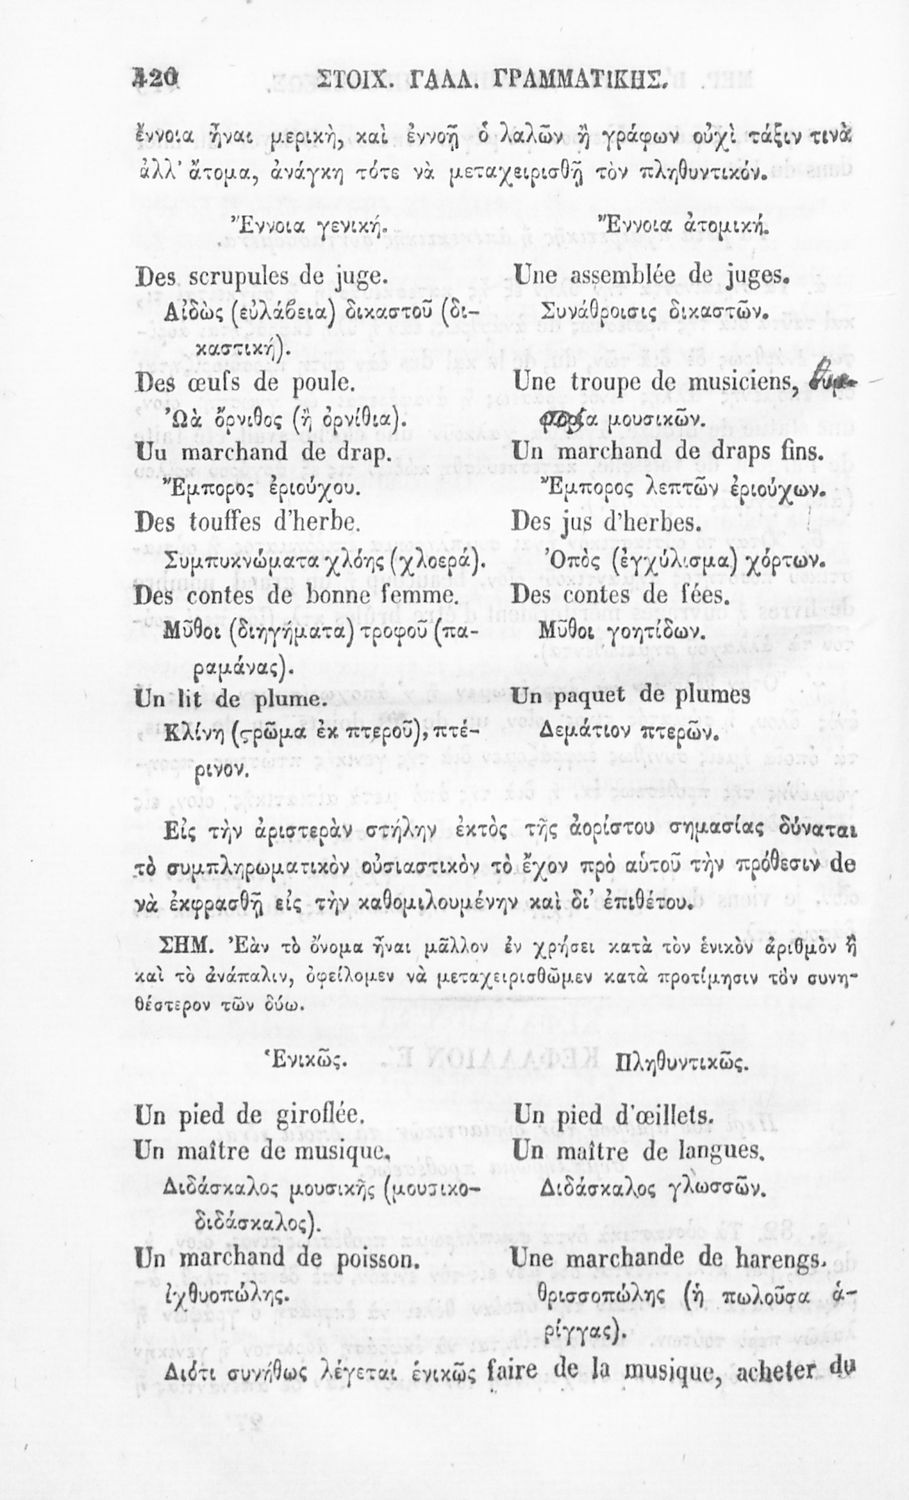 420 ΣΤΟΙΧ. ΓΑΛΛ. ΓΡΑΜΜΑΤΙΚΗΣ.
ἔννοια ἦναι μερικὴ, καὶ ἐννοῇ ὁ λαλῶν ἢ γράφων οὐχὶ τάξιν τινὰ
ἀλλ’ ἄτομα, ἀνάγκη τότε νὰ μεταχειρισθῇ τὸν πληθυντικόν.
Ἔννοια γενική.
Ἔννοια ἀτομική.
Des scrupules de juge.
Une assemblée de juges.
Αἰδὼς (εὐλάβεια) δικαστοῦ (δι-
Συνάθροισις δικαστῶν.
καστική).
Des œufs de poule.
Une troupe de musiciens,
Ὠὰ ὄρνιθος (ἢ ὀρνίθια).
μουσικῶν.
Uu marchand de drap.
Un marchand de draps fins.
Ἔμπορος ἐριούχου.
Ἔμπορος λεπτῶν ἐριούχων.
Des touffes d’herbe.
Des jus d’herbes.
Συμπυκνώματα χλόης (χλοερά).
Ὀπὸς (ἐγχύλισμα) χόρτων.
Des contes de bonne femme.
Des contes de fées.
Μῦθοι (διηγήματα) τροφοῦ (πα-
Μῦθοι γοητίδων.
ραμάνας).
Un lit de plume.
Un paquet de plumes
Κλίνη (ϛρῶμα ἐκ πτεροῦ), πτέ-
Δεμάτιον πτερῶν.
ρινον.
Εἰς τὴν ἀριστερὰν στήλην ἐκτὸς τῆς ἀορίστου σημασίας δύναται
τὸ συμπληρωματικὸν οὐσιαστικὸν τὸ ἔχον πρὸ αὐτοῦ τὴν πρόθεσιν de
νὰ ἐκφρασθῇ εἰς τὴν καθομιλουμένην καὶ δι’ ἐπιθέτου.
ΣΗΜ. Ἐὰν τὸ ὄνομα ἦναι μᾶλλον ἐν χρήσει κατὰ τὸν ἑνικὸν ἀριθμὸν ἢ
καὶ τὸ ἀνάπαλιν, ὀφείλομεν νὰ μεταχειρισθῶμεν κατὰ προτίμησιν τὸν συνη-
θέστερον τῶν δύω.
Ἑνικῶς.
Πληθυντικῶς.
Un pied de giroflée.
Un pied d’œillets.
Un maître de musique.
Un maître de langues.
Διδάσκαλος μουσικῆς (μουσικο-
Διδάσκαλος γλωσσῶν.
διδάσκαλος).
Un marchand de poisson.
Une marchande de harengs.
ἰχθυοπώλης.
θρισσοπώλης (ἡ πωλοῦσα ἁ-
ρίγγας).
Διότι συνήθως λέγεται ἑνικῶς faire de la musique, acheter du